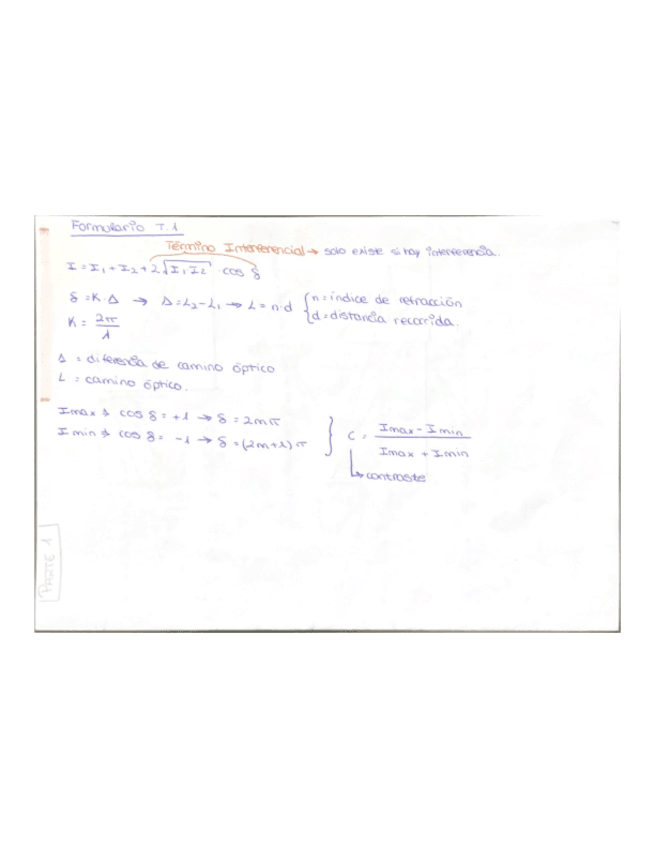 Formulario T.1
Término Interferencial → solo existe si hay interferencia.
I = I₁ + I₂ + 2√(I₁I₂) · cos δ
δ = K·Δ → Δ = L₂ - L₁ → L = n·d { n = índice de refracción
d = distancia recorrida.
K = 2π/λ
Δ = diferencia de camino óptico
L = camino óptico.
Imax ⇒ cos δ = +1 → δ = 2mπ
Imin ⇒ cos δ = -1 → δ = (2m+1)π
} C = (Imax - Imin)/(Imax + Imin)
↳ contraste
PARTE 1